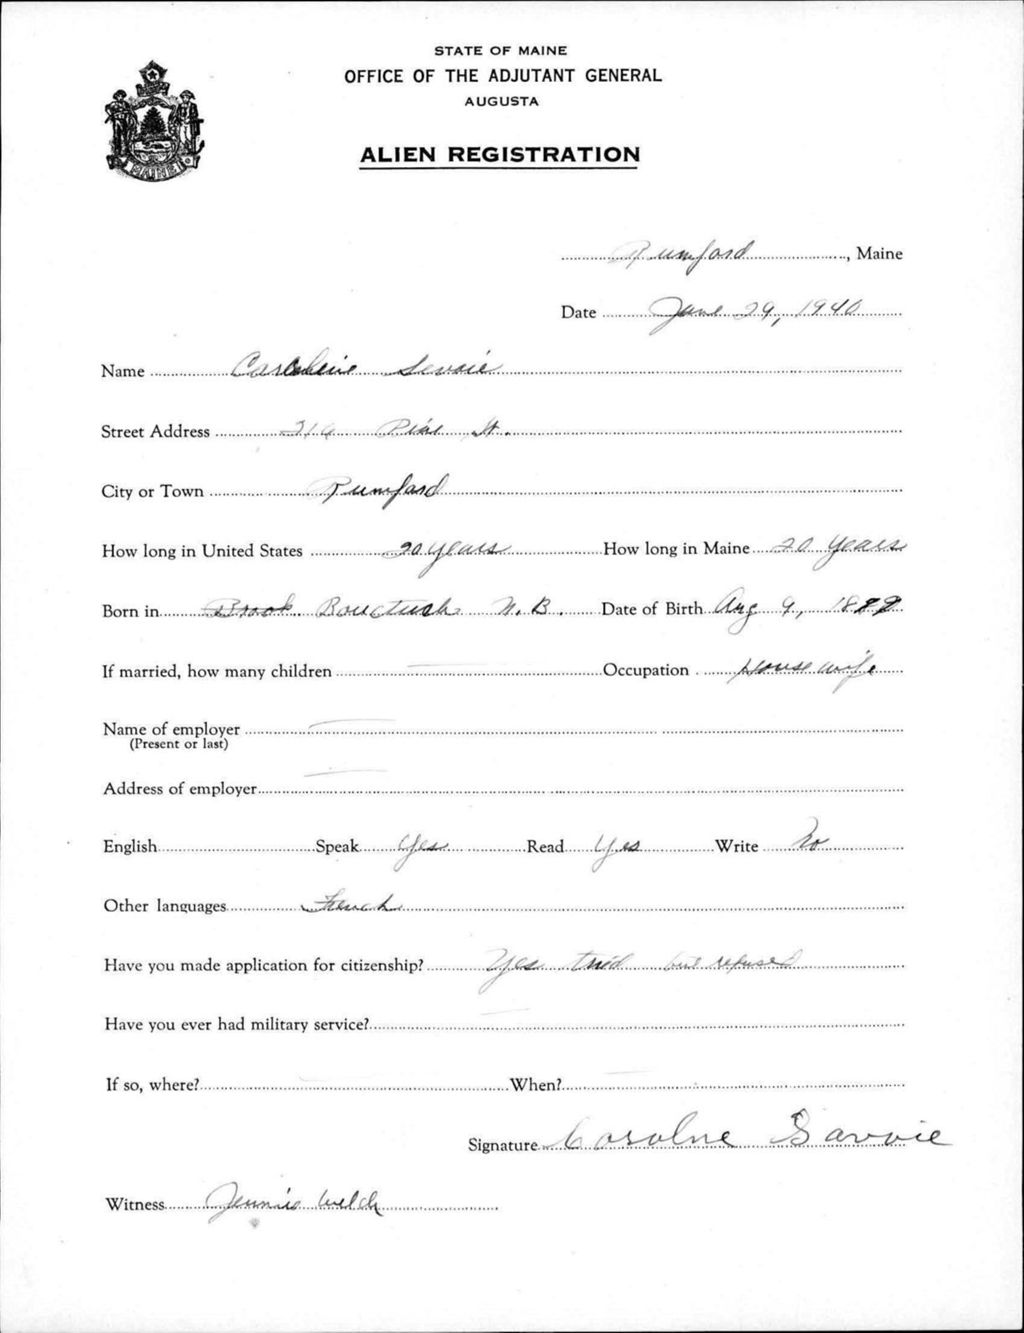 STATE OF MAINE
OFFICE OF THE ADJUTANT GENERAL
AUGUSTA
ALIEN REGISTRATION
MAINE
Rumford, Maine
Date June 29, 1940
Name Caroline Savoie
Street Address 216 Pine St.
City or Town Rumford
How long in United States 20 years How long in Maine 20 years
Born in Brook Bouctuch N. B. Date of Birth Aug 9, 1889
If married, how many children Occupation Housewife
Name of employer
(Present or last)
Address of employer
English Speak Yes Read Yes Write No
Other languages French
Have you made application for citizenship? Yes tried but refused
Have you ever had military service?
If so, where? When?
Signature Carolne Savoie
Witness Jennie Welch